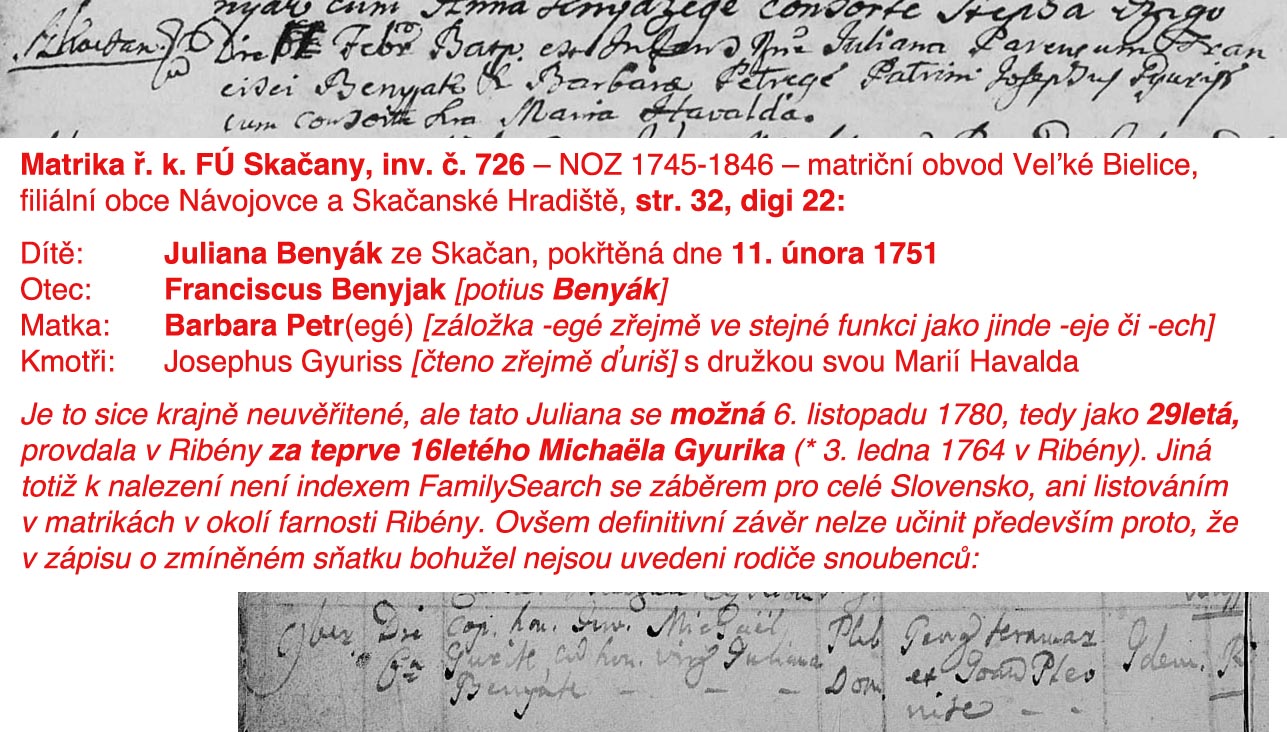 nyak cum Anna
Skacsan. Die Febr Bapt. est Infans Nne Juliana Parentum Fran
cisci Benyjak & Barbara Petregé Patrini Josephus Gyuriss
cum consorte sua Maria Havalda.
Matrika ř. k. FÚ Skačany, inv. č. 726 – NOZ 1745-1846 – matriční obvod Veľké Bielice,
filiální obce Návojovce a Skačanské Hradiště, str. 32, digi 22:
Dítě: Juliana Benyák ze Skačan, pokřtěná dne 11. února 1751
Otec: Franciscus Benyjak [potius Benyák]
Matka: Barbara Petr(egé) [záložka -egé zřejmě ve stejné funkci jako jinde -eje či -ech]
Kmotři: Josephus Gyuriss [čteno zřejmě ďuriš] s družkou svou Marií Havalda
Je to sice krajně neuvěřitené, ale tato Juliana se možná 6. listopadu 1780, tedy jako 29letá,
provdala v Ribény za teprve 16letého Michaëla Gyurika (* 3. ledna 1764 v Ribény). Jiná
totiž k nalezení není indexem FamilySearch se záběrem pro celé Slovensko, ani listováním
v matrikách v okolí farnosti Ribény. Ovšem definitivní závěr nelze učinit především proto, že
v zápisu o zmíněném sňatku bohužel nejsou uvedeni rodiče snoubenců:
9ber Die Cop. hon. Juv. Michaël Pleb Georg Idem. R
6a Gurik cū hon. virg Juliana Dom. et Joan Plev
Benyák - - - nike - -